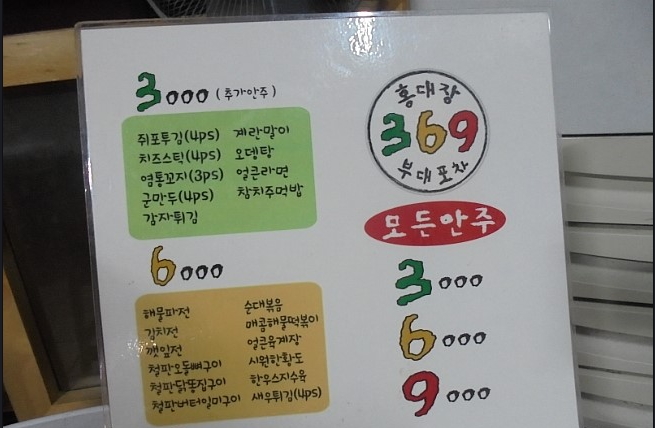 3000 (추가안주)
쥐포투김(4ps) 계란말이
치즈스틱(4ps) 오뎅탕
염통꼬지(3ps) 얼큰라면
군만두(4ps) 참치주먹밥
감자튀김
6000
해물파전 순대볶음
김치전 매콤해물떡볶이
깻잎전 얼큰육계장
철판오돌뼈구이 시원한황도
철판닭똥집구이 한우스지수육
철판버터일미구이 새우튀김(4ps)
홍대장
369
부대포차
모든안주
3000
6000
9000